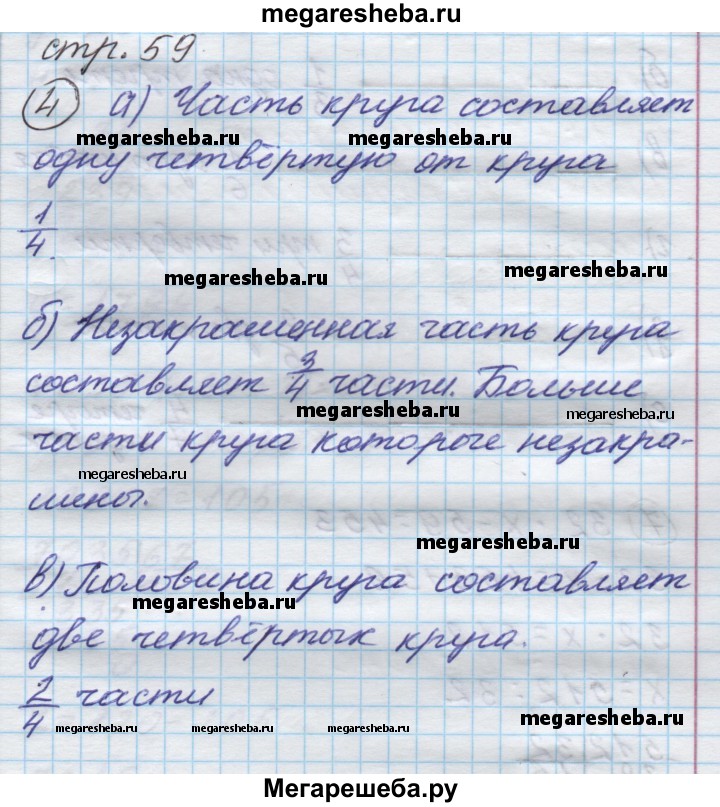 megaresheba.ru
стр. 59
4 а) Часть круга составляет
megaresheba.ru megaresheba.ru
одну четвёртую от круга
1/4.
megaresheba.ru megaresheba.ru
б) Незакрашенная часть круга
составляет 3/4 части. Больше
megaresheba.ru megaresheba.ru
части круга которые незакра-
megaresheba.ru
шены.
megaresheba.ru
в) Половина круга составляет
megaresheba.ru
две четвёртых круга.
2/4 части
megaresheba.ru megaresheba.ru megaresheba.ru megaresheba.ru
Мегарешеба.ру